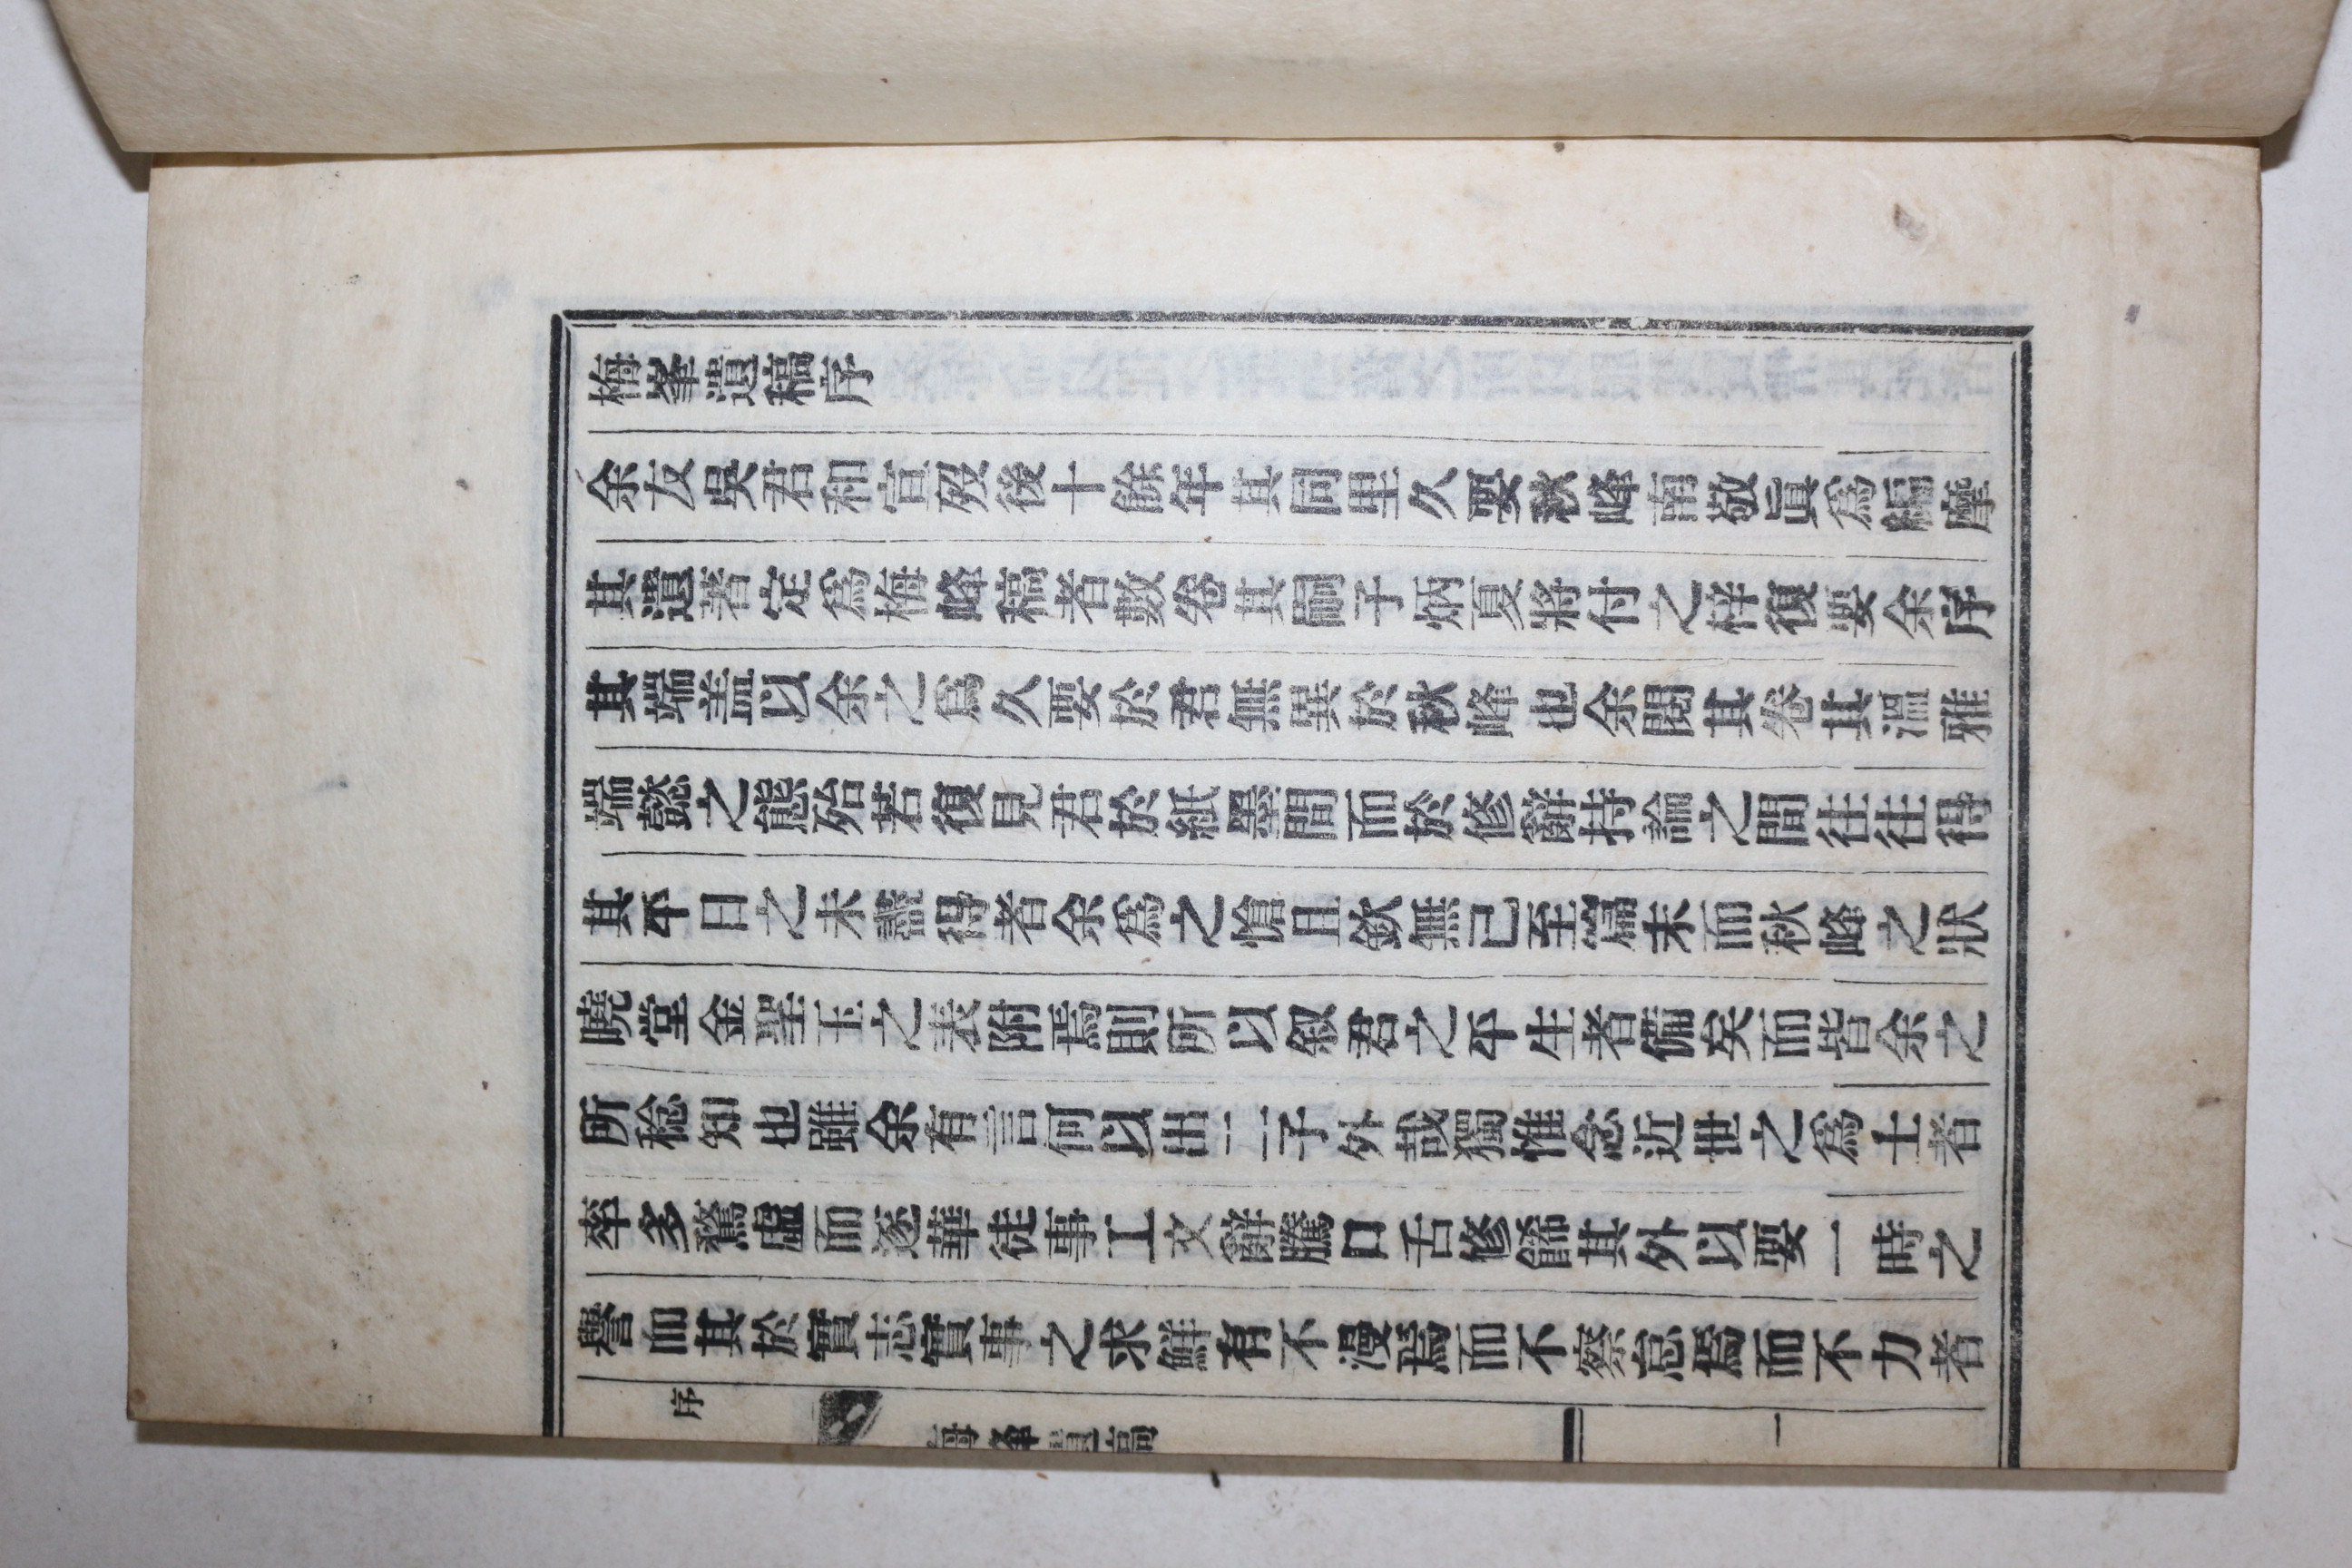 梅峯遺稿序
余友吳君和宣歿後十餘年其同里久要秋峰南敬眞爲編摩
其遺著定爲梅峰稿者數卷其嗣子炳夏將付之梓復要余序
其端盖以余之爲久要於君無異於秋峰也余閱其卷其溫雅
端懿之態殆若復見君於紙墨間而於修辭持論之間往往得
其平日之未盡得者余爲之愴且欽無已至篇末而秋峰之狀
曉堂金聖玉之表附焉則所以叙君之平生者備矣而皆余之
所稔知也雖余有言何以出二子外哉獨惟念近世之爲士者
率多騖虛而逐華徒事工文辭騰口舌修餙其外以要一時之
譽而其於實志實事之求鮮有不漫焉而不察怠焉而不力者
梅峯遺稿
序
一